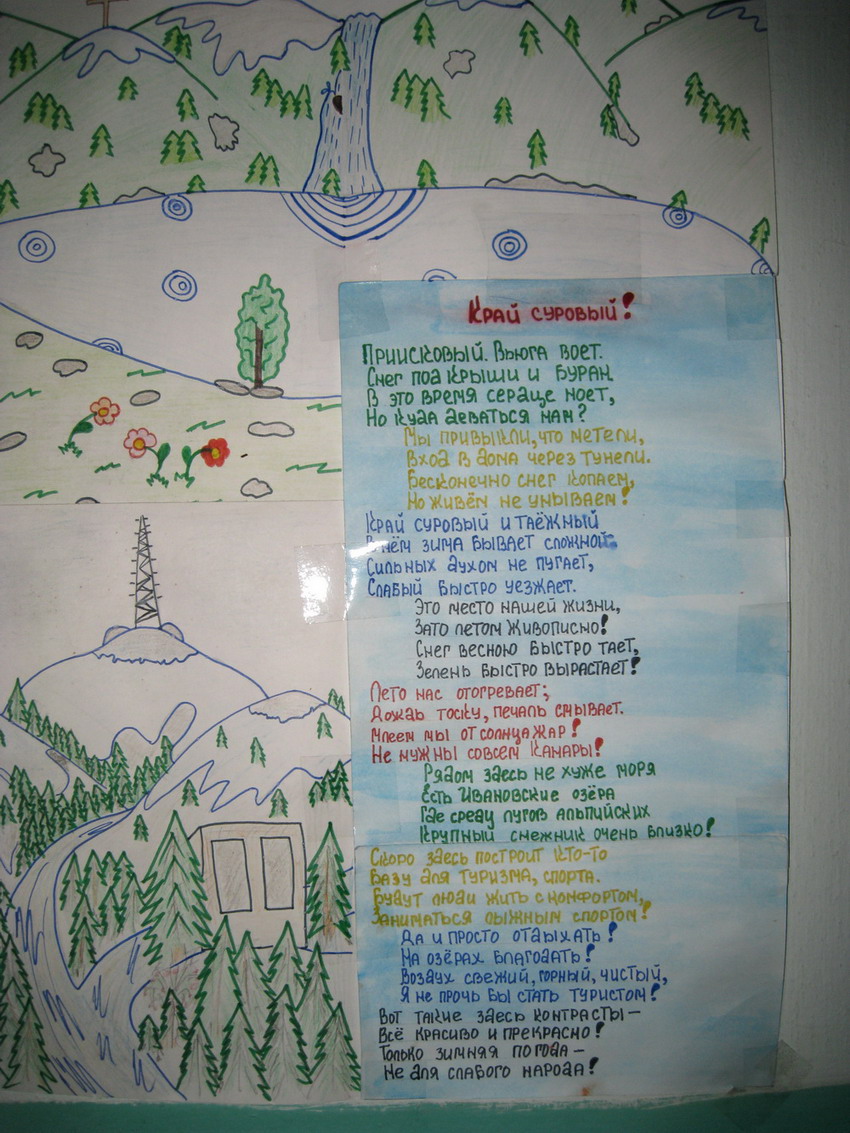 Край суровый!
Приисковый. Вьюга воет.
Снег под крыши и буран
В это время сердце ноет,
Но куда деваться нам?
Мы привыкли, что метели,
Вход в дома через тунели.
Бесконечно снег копаем,
Но живём не унываем!
Край суровый и таёжный
В нём зима бывает сложной.
Сильных духом не пугает,
Слабый быстро уезжает.
Это место нашей жизни,
Зато летом живописно!
Снег весною быстро тает,
Зелень быстро вырастает!
Лето нас отогревает;
Дождь тоску, печаль смывает.
Млеем мы от солнца жар!
Не нужны совсем Канары!
Рядом здесь не хуже моря
Есть Ивановские озёра
Где среди лугов альпийских
Крупный снежник очень близко!
Скоро здесь построит кто-то
Базу для туризма, спорта.
Будут люди жить с комфортом,
Заниматься лыжным спортом!
Да и просто отдыхать!
На озёрах благодать!
Воздух свежий, горный, чистый,
Я не прочь бы стать туристом!
Вот такие здесь контрасты –
Всё красиво и прекрасно!
Только зимняя погода –
Не для слабого народа!